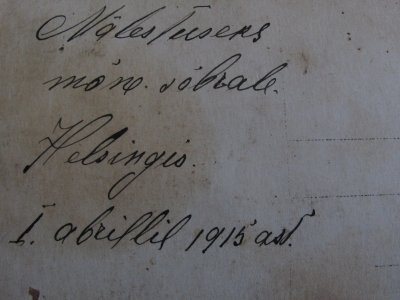 Mälestuseks
mõne. sõbrale.
Helsingis.
I. abrillil 1915 ast.